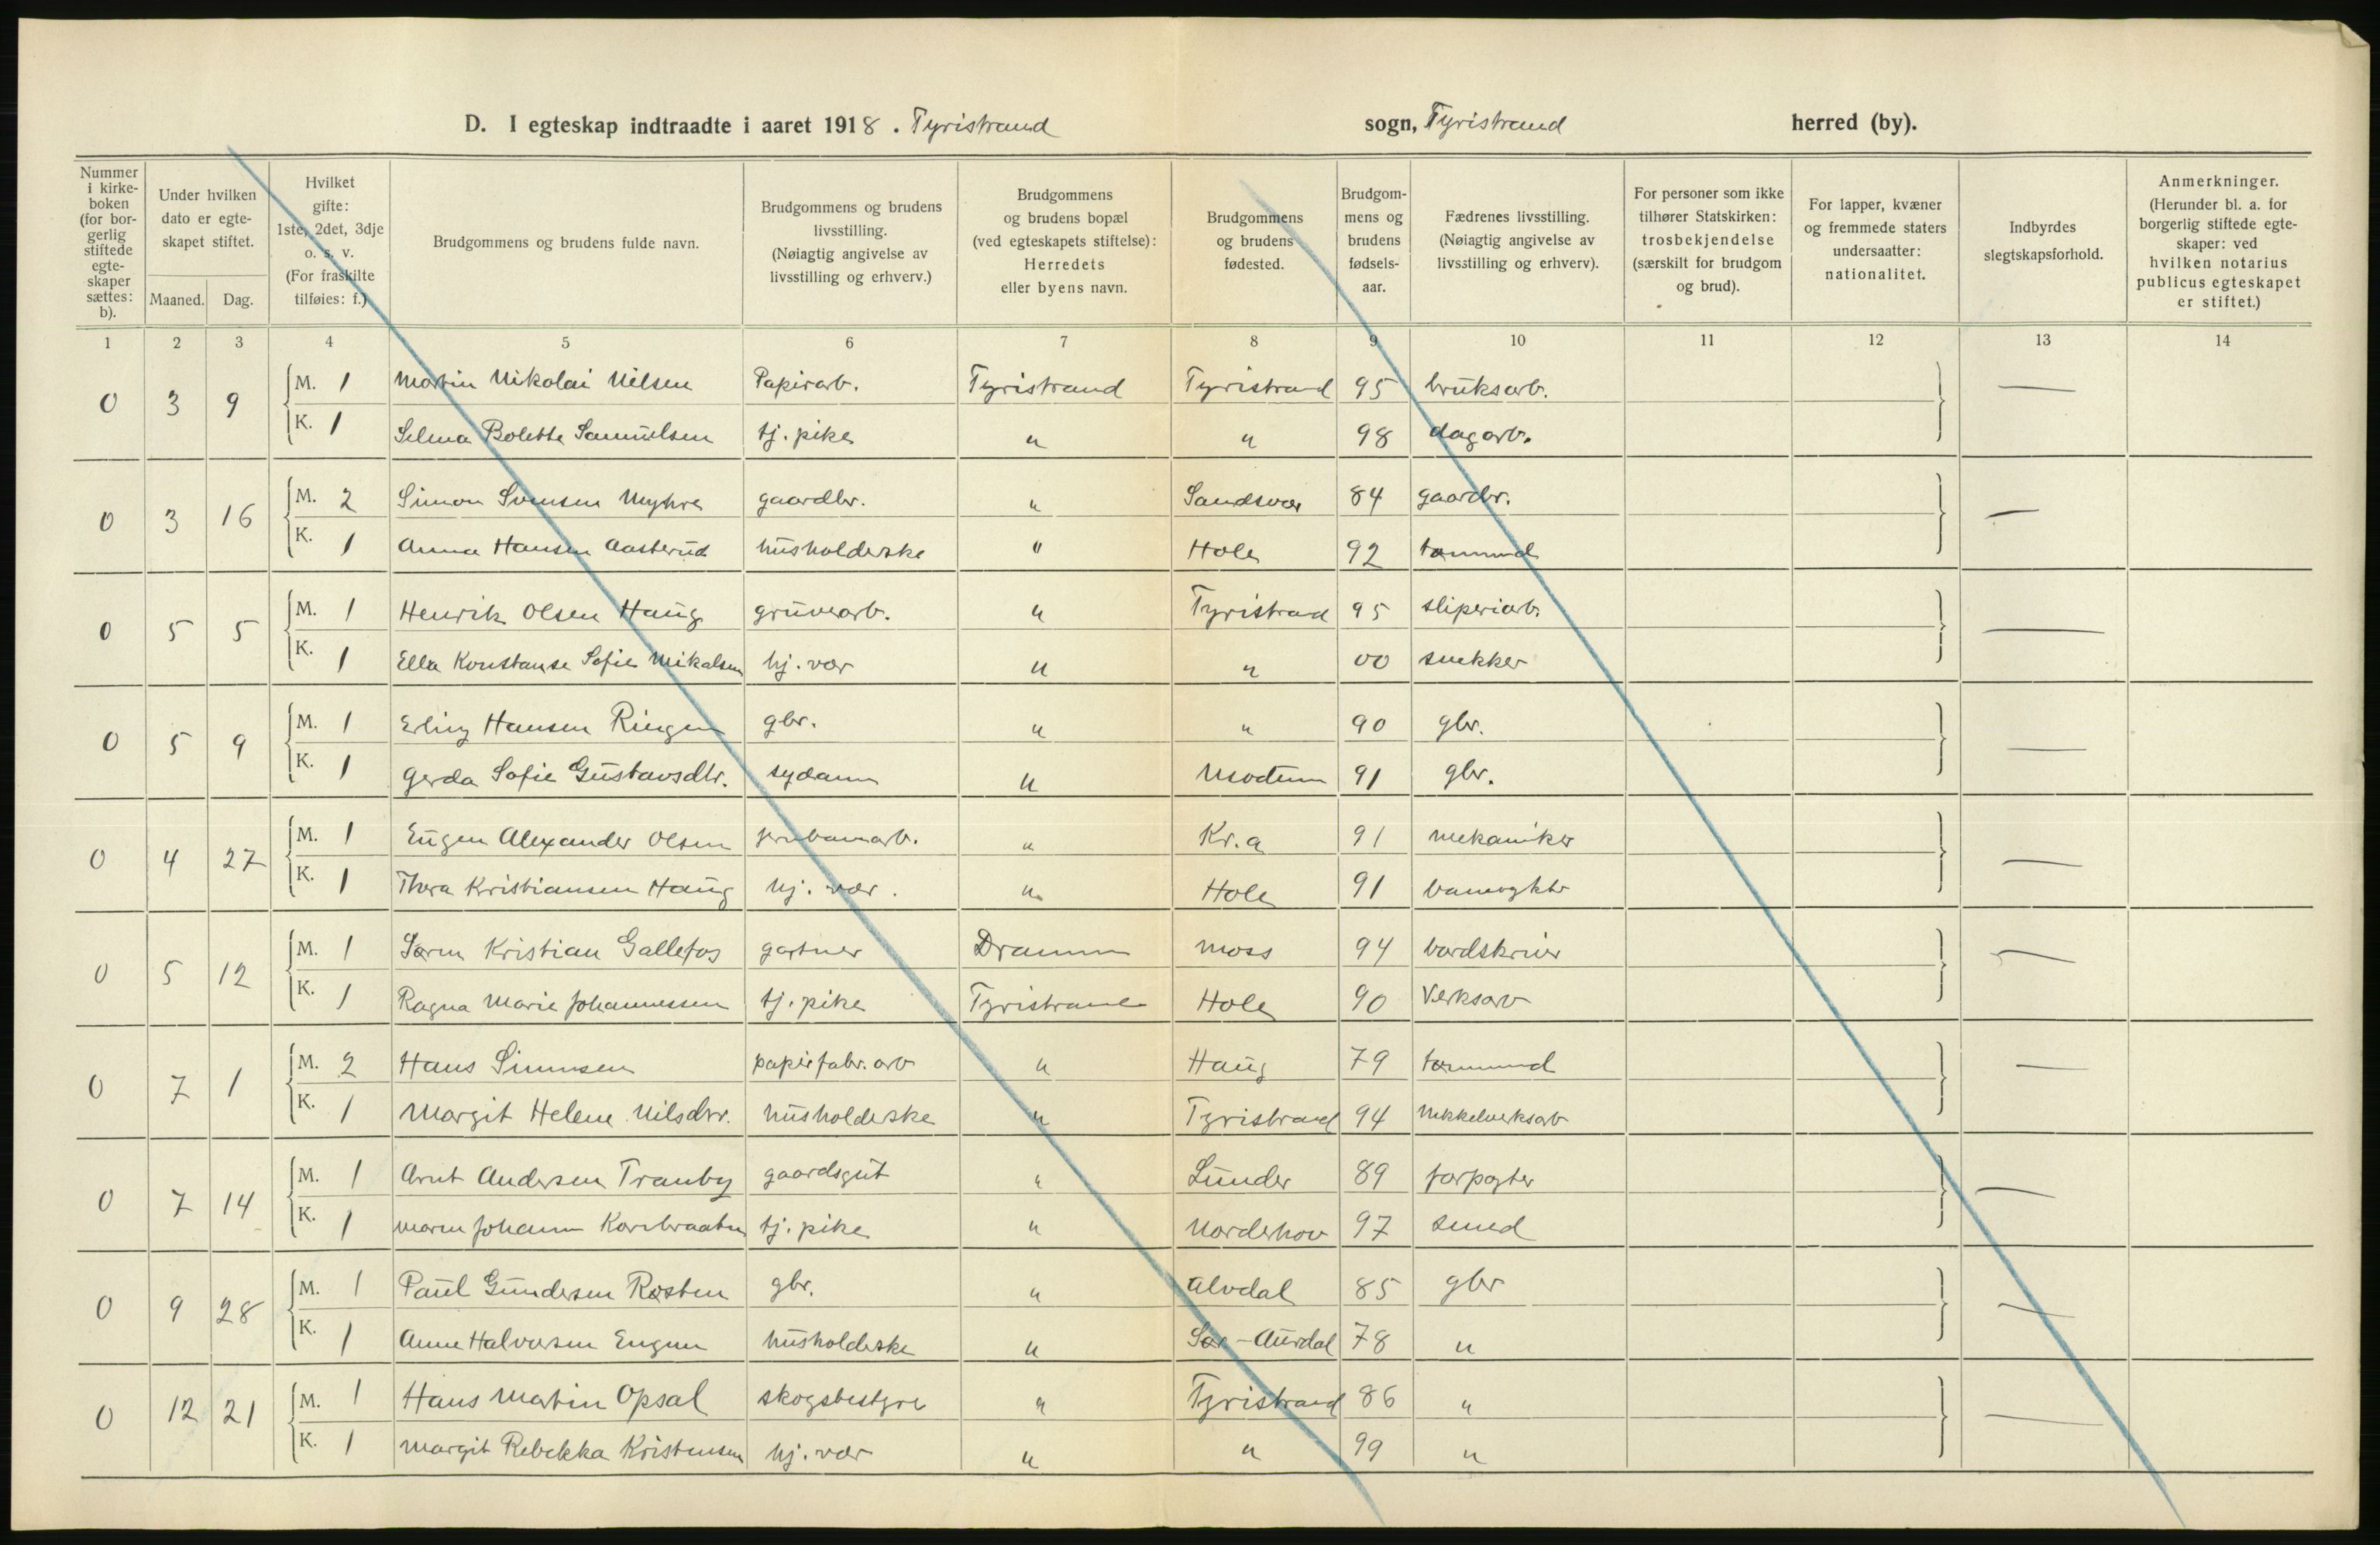 D. I egteskap indtraadte i aaret 1918. Tyristrand sogn, Tyristrand herred (by).
Nummer i kirkeboken (for borgerlig stiftede egteskaper sættes: b).
Under hvilken dato er egteskapet stiftet.
Maaned. Dag.
Hvilket gifte: 1ste, 2det, 3dje o. s. v. (For fraskilte tilføies: f.)
Brudgommens og brudens fulde navn.
Brudgommens og brudens livsstilling. (Nøiagtig angivelse av livsstilling og erhverv.)
Brudgommens og brudens bopæl (ved egteskapets stiftelse): Herredets eller byens navn.
Brudgommens og brudens fødested.
Brudgommens og brudens fødselsaar.
Fædrenes livsstilling. (Nøiagtig angivelse av livsstilling og erhverv).
For personer som ikke tilhører Statskirken: trosbekjendelse (særskilt for brudgom og brud).
For lapper, kvæner og fremmede staters undersaatter: nationalitet.
Indbyrdes slegtskapsforhold.
Anmerkninger. (Herunder bl. a. for borgerlig stiftede egteskaper: ved hvilken notarius publicus egteskapet er stiftet.)
1 2 3 4 5 6 7 8 9 10 11 12 13 14
0 3 9 M. 1 Martin Nikolai Nilsen Papirarb. Tyristrand Tyristrand 95 bruksarb. —
K. 1 Selma Bolette Samuelsen tj. pike " " 98 dagarb.
0 3 16 M. 2 Simon Svensen Myhre gaardbr. " Sandsvær 84 gaardbr. —
K. 1 Anna Hansen Aasterud husholderske " Hole 92 tømmerm
0 5 5 M. 1 Henrik Olsen Haug gruvearb. " Tyristrand 95 sliperiarb. —
K. 1 Ella Konstanse Sofie Mikalsen hj. vær " " 00 snekker
0 5 9 M. 1 Erling Hansen Ringen gbr. " " 90 gbr. —
K. 1 Gerda Sofie Gustavsdtr. sydame " Modum 91 gbr.
0 4 27 M. 1 Eugen Alexander Olsen jernbanearb. " Kr.a 91 mekaniker —
K. 1 Thora Kristiansen Haug hj. vær. " Hole 91 banevogter
0 5 12 M. 1 Søren Kristian Gallefos gartner Drammen Moss 94 bordskriver —
K. 1 Ragna Marie Johannessen tj. pike Tyristrand Hole 90 Verksarb
0 7 1 M. 2 Hans Simensen papirfabr.arb " Haug 79 —
K. 1 Margit Helene Nilsdtr. husholderske " Tyristrand 94 Nikkelverksarb
0 7 14 M. 1 Arnt Andersen Tranby gaardsgut " Lunder 89 forpagter —
K. 1 Maren Johanne tj. pike " Norderhov 97 smed
0 9 28 M. 1 Paul Gundersen Rosten gbr. " Alvdal 85 gbr —
K. 1 Anne Halvorsen Engen husholderske " Sør-Aurdal 78 "
0 12 21 M. 1 Hans Martin Opsal skogsbestyrer " Tyristrand 86 " —
K. 1 Margit Rebekka Kristensen hj. vær " " 99 "